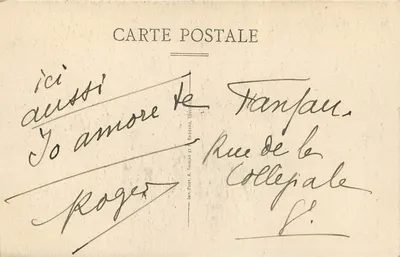 CARTE POSTALE
ici
aussi
Io amore te
Roger
Fanfan.
Rue de la
Collegiale